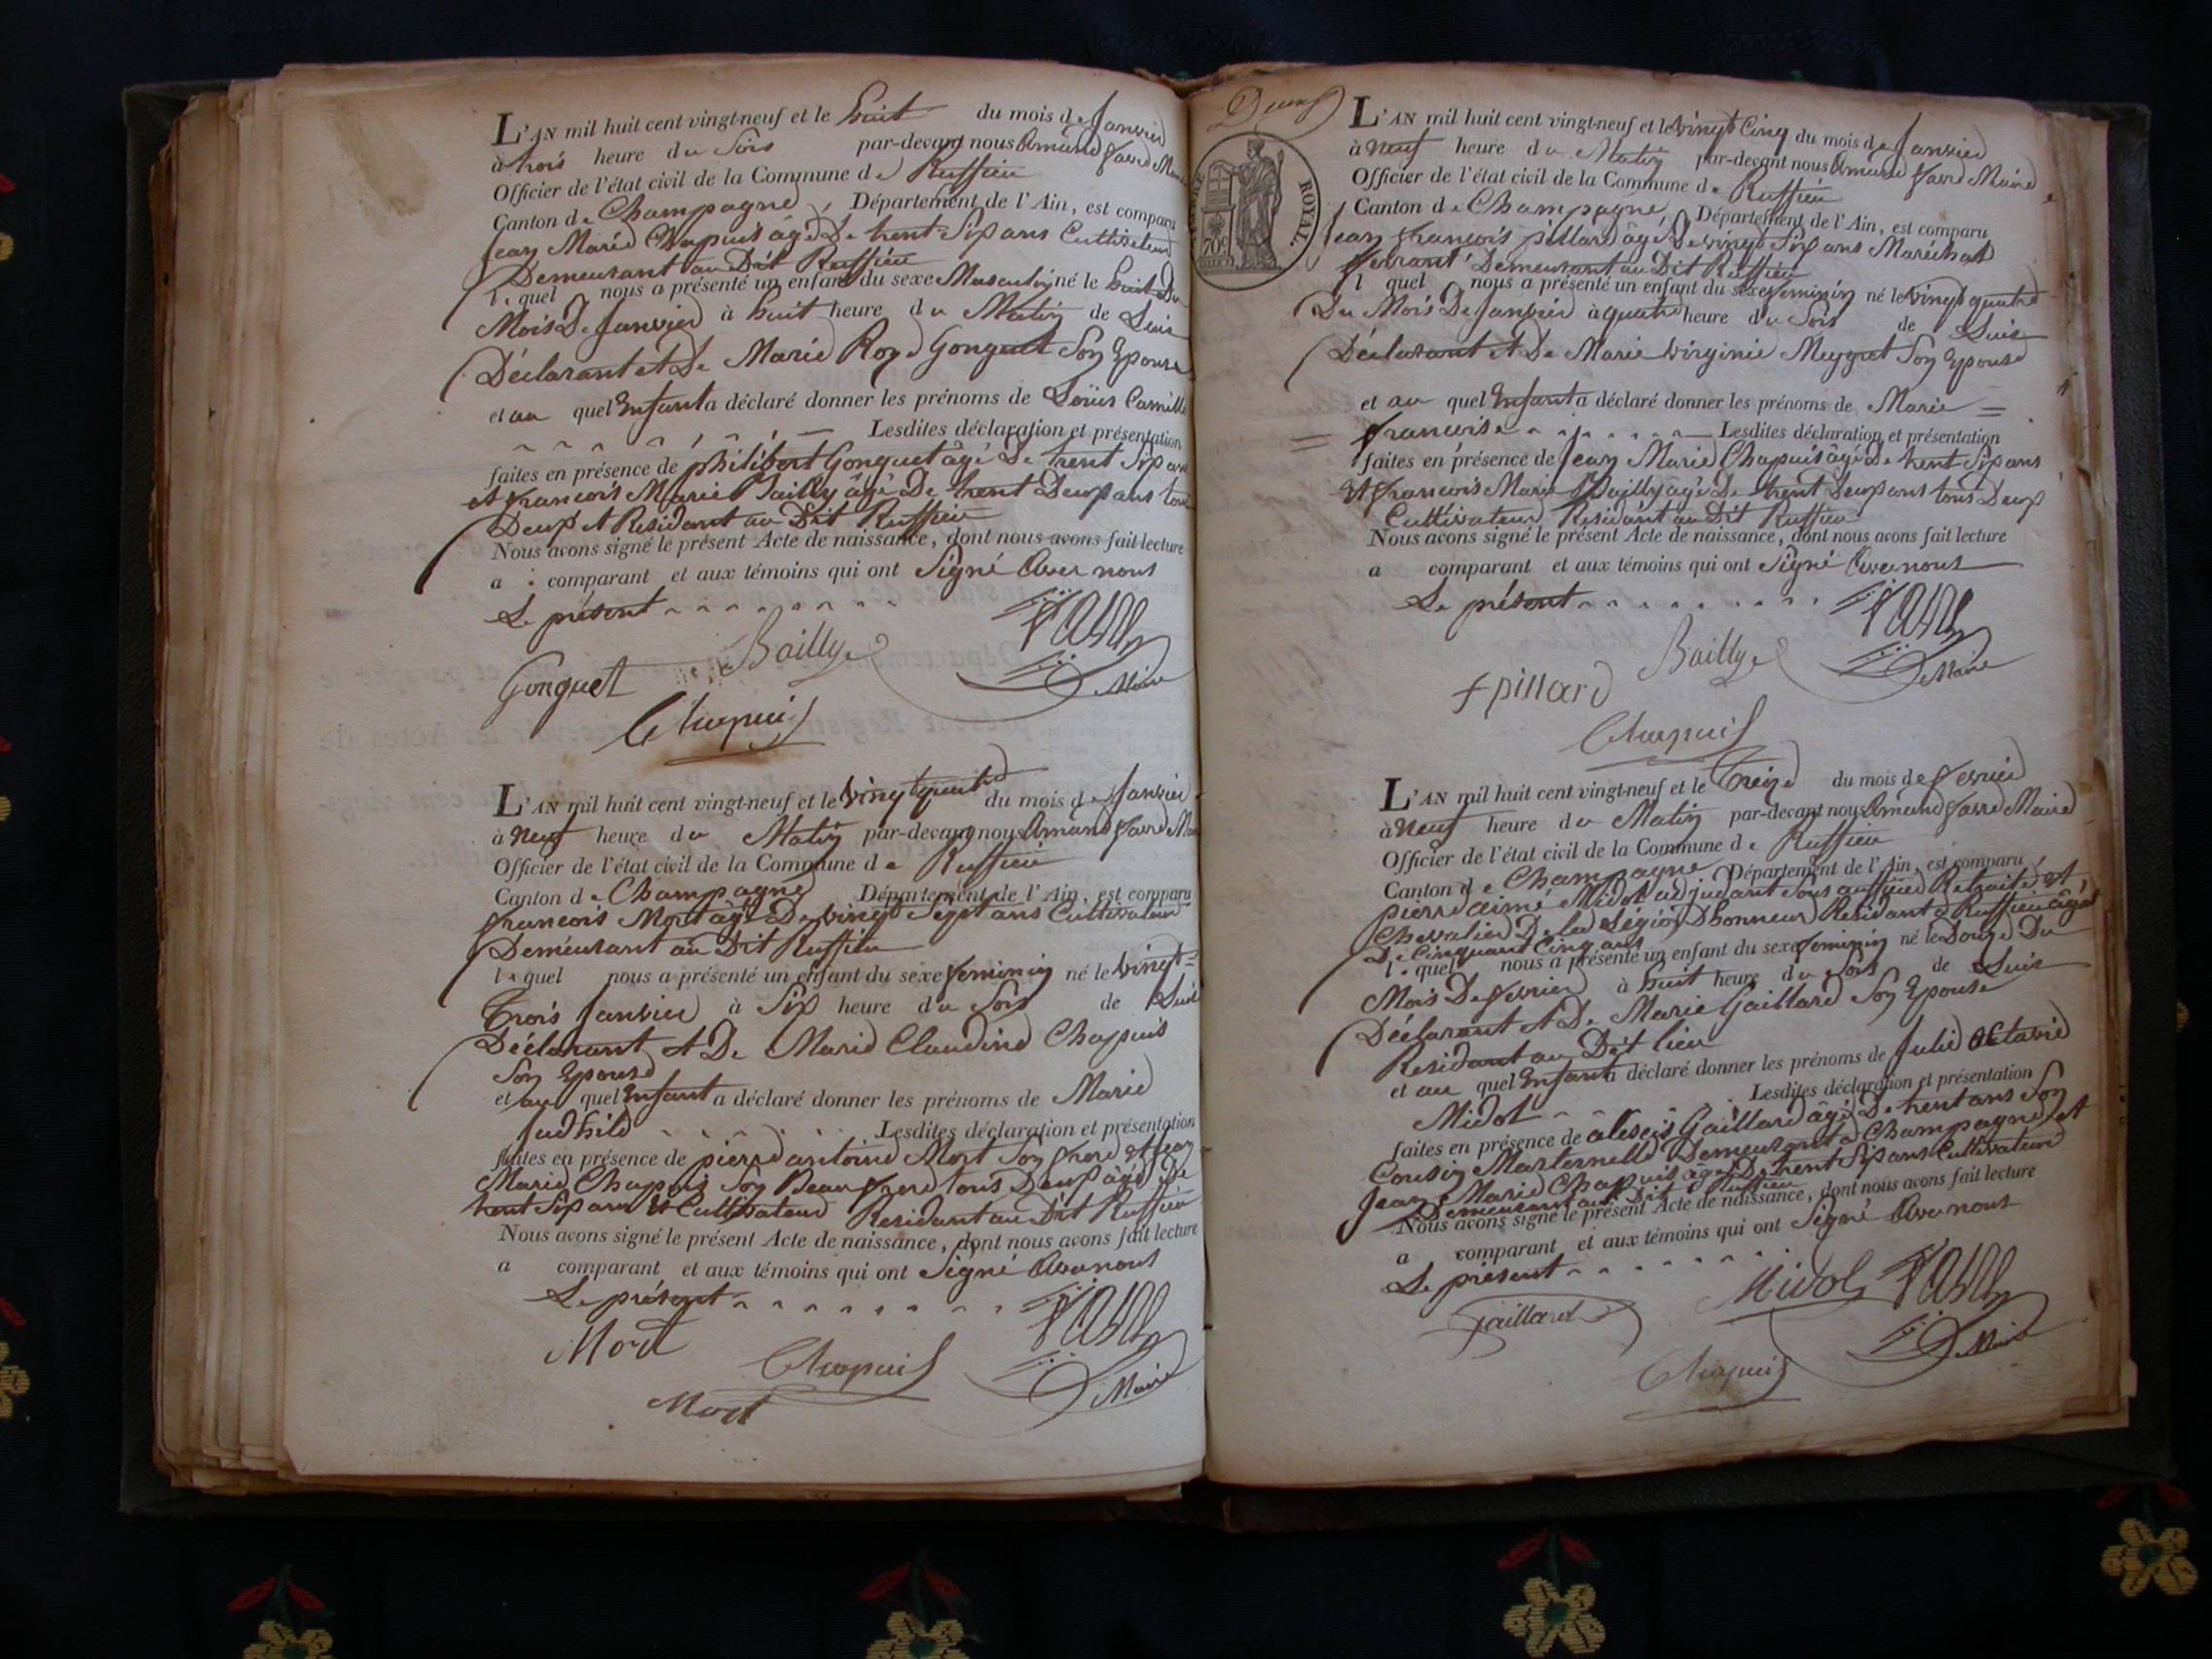 L'AN mil huit cent vingt-neuf et le huit du mois de Janvier
à trois heure du Soir par-devant nous Amand favre Maire
Officier de l'état civil de la Commune de Ruffieu
Canton de Champagne, Département de l'Ain, est comparu
Jean Marie Chapuis âgé De trent Six ans Cultivateur
Demeurant au Dit Ruffieu
lequel nous a présenté un enfant du sexe Masculin né le huit Du
Mois De Janvier à huit heure du Matin de Luis
Déclarant et De Marie Roze Gonguet Son Epouse
et au quel Enfant a déclaré donner les prénoms de Louis Camille
Lesdites déclaration et présentation
faites en présence de philibert Gonguet âgé De trent Six ans
et francois Marie Bailly âgé De trent Deux ans tous
Deux et Residant au Dit Ruffieu
Nous avons signé le présent Acte de naissance, dont nous avons fait lecture
a comparant et aux témoins qui ont Signé Avec nous
Le présent
Bailly
Gonguet
Maire
Chapuis
L'AN mil huit cent vingt-neuf et le vingt quatre du mois de Janvier
à Neuf heure du Matin par-devant nous Amand favre Maire
Officier de l'état civil de la Commune de Ruffieu
Canton de Champagne Département de l'Ain, est comparu
francois Mort âgé De vingt Sept ans Cultivateur
Demeurant au Dit Ruffieu
lequel nous a présenté un enfant du sexe feminin né le vingt=
Trois Janvier à Six heure du Soir de Luis
Déclarant et De Marie Claudine Chapuis
Son Epouse
et au quel Enfant a déclaré donner les prénoms de Marie
Lesdites déclaration et présentation
faites en présence de pierre antoine Mort Son frere et Jean
Marie Chapuis Son Beau frere tous Deux âgé De
trent Six ans et Cultivateur Residant au Dit Ruffieu
Nous avons signé le présent Acte de naissance, dont nous avons fait lecture
a comparant et aux témoins qui ont Signé Avec nous
Le présent
Mort
Chapuis
Maire
Mort
Deux
ROYAL
70c
L'AN mil huit cent vingt-neuf et le vingt Cinq du mois de Janvier
à Neuf heure du Matin par-devant nous Amand favre Maire
Officier de l'état civil de la Commune de Ruffieu
Canton de Champagne, Département de l'Ain, est comparu
Jean francois pillard âgé De vingt Six ans Maréchal
ferrant Demeurant au Dit Ruffieu
l quel nous a présenté un enfant du sexe feminin né le vingt quatre
Du Mois De Janvier à quatre heure du Soir de Luis
Déclarant et De Marie Virginie Meygret Son Epouse
et au quel Enfant a déclaré donner les prénoms de Marie =
= francoise Lesdites déclaration et présentation
faites en présence de Jean Marie Chapuis âgé De trent Six ans
et francois Marie Bailly âgé De trent Deux ans tous Deux
Cultivateur Residant au Dit Ruffieu
Nous avons signé le présent Acte de naissance, dont nous avons fait lecture
a comparant et aux témoins qui ont Signé Avec nous
Le présent
Bailly
Maire
f pillard
Chapuis
L'AN mil huit cent vingt-neuf et le Treize du mois de fevrier
à Neuf heure du Matin par-devant nous Amand favre Maire
Officier de l'état civil de la Commune de Ruffieu
Canton de Champagne Département de l'Ain, est comparu
pierre aimé Midol adjudant Sous officier Retraité et
Chevalier De la Légion Dhonneur Residant a Ruffieu âgé
De Cinquant Cinq ans
lequel nous a présenté un enfant du sexe feminin né le Douze Du
Mois De fevrier à huit heure du Soir de Luis
Déclarant et De Marie Gaillard Son Epouse
Residant au Dit lieu
et au quel Enfant a déclaré donner les prénoms de Julie Octavie
Midol Lesdites déclaration et présentation
faites en présence de alexis Gaillard âgé De trent ans Son
Cousin Marternelle Demeurant a Champagne et
Jean Marie Chapuis âgé De trent Six ans Cultivateur
Demeurant au Dit Ruffieu
Nous avons signé le présent Acte de naissance, dont nous avons fait lecture
a comparant et aux témoins qui ont Signé Avec nous
Le présent
Midol
gaillard
Maire
Chapuis